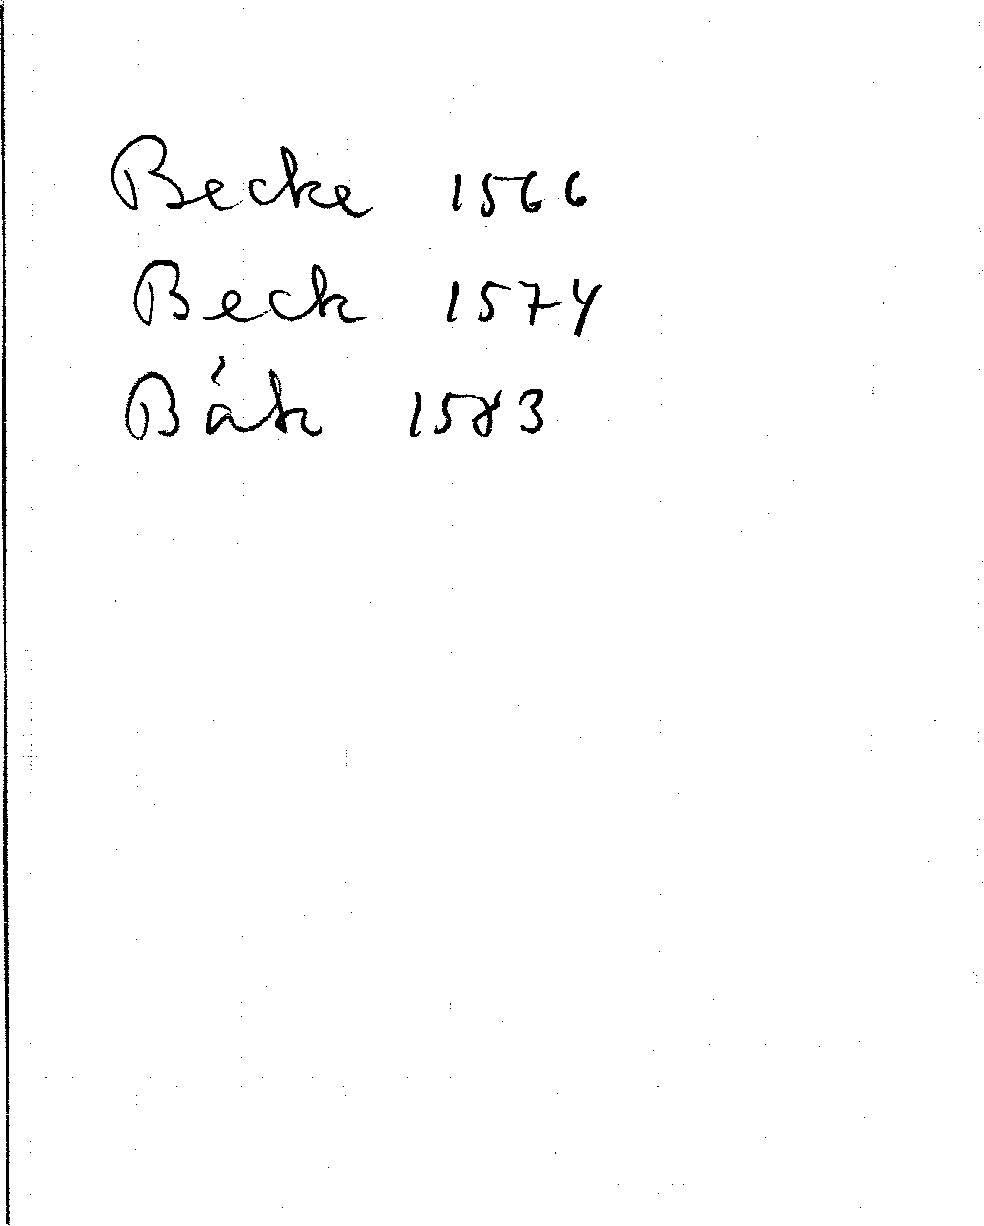 Becke 1566
Beck 1574
Båk 1583